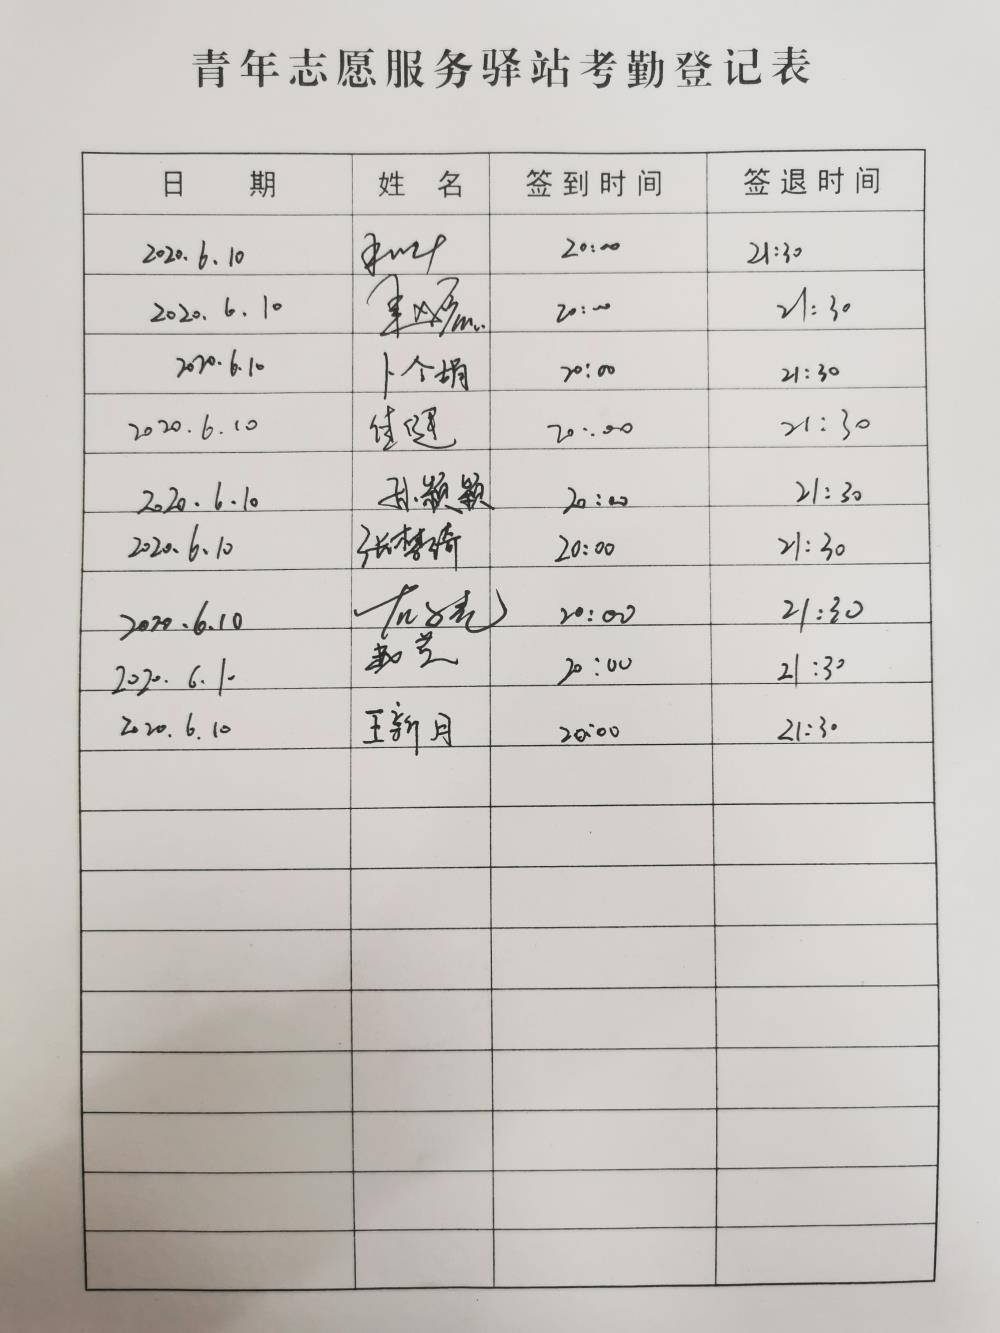 青年志愿服务驿站考勤登记表
日 期 姓 名 签到时间 签退时间
2020.6.10 20:00 21:30
2020.6.10 20:00 21:30
2020.6.10 卜令娟 20:00 21:30
2020.6.10 20:00 21:30
2020.6.10 孙颖颖 20:00 21:30
2020.6.10 张梦琦 20:00 21:30
2020.6.10 20:00 21:30
2020.6.10 20:00 21:30
2020.6.10 王新月 20:00 21:30